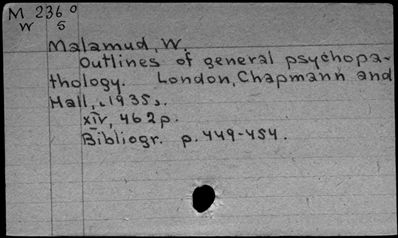 M 236 0
W 5
Malamud, W.
Outlines of general psychopa-
thology. London, Chapmann and
Hall, c1935.
XIV, 462 p.
Bibliogr. p. 449-454.